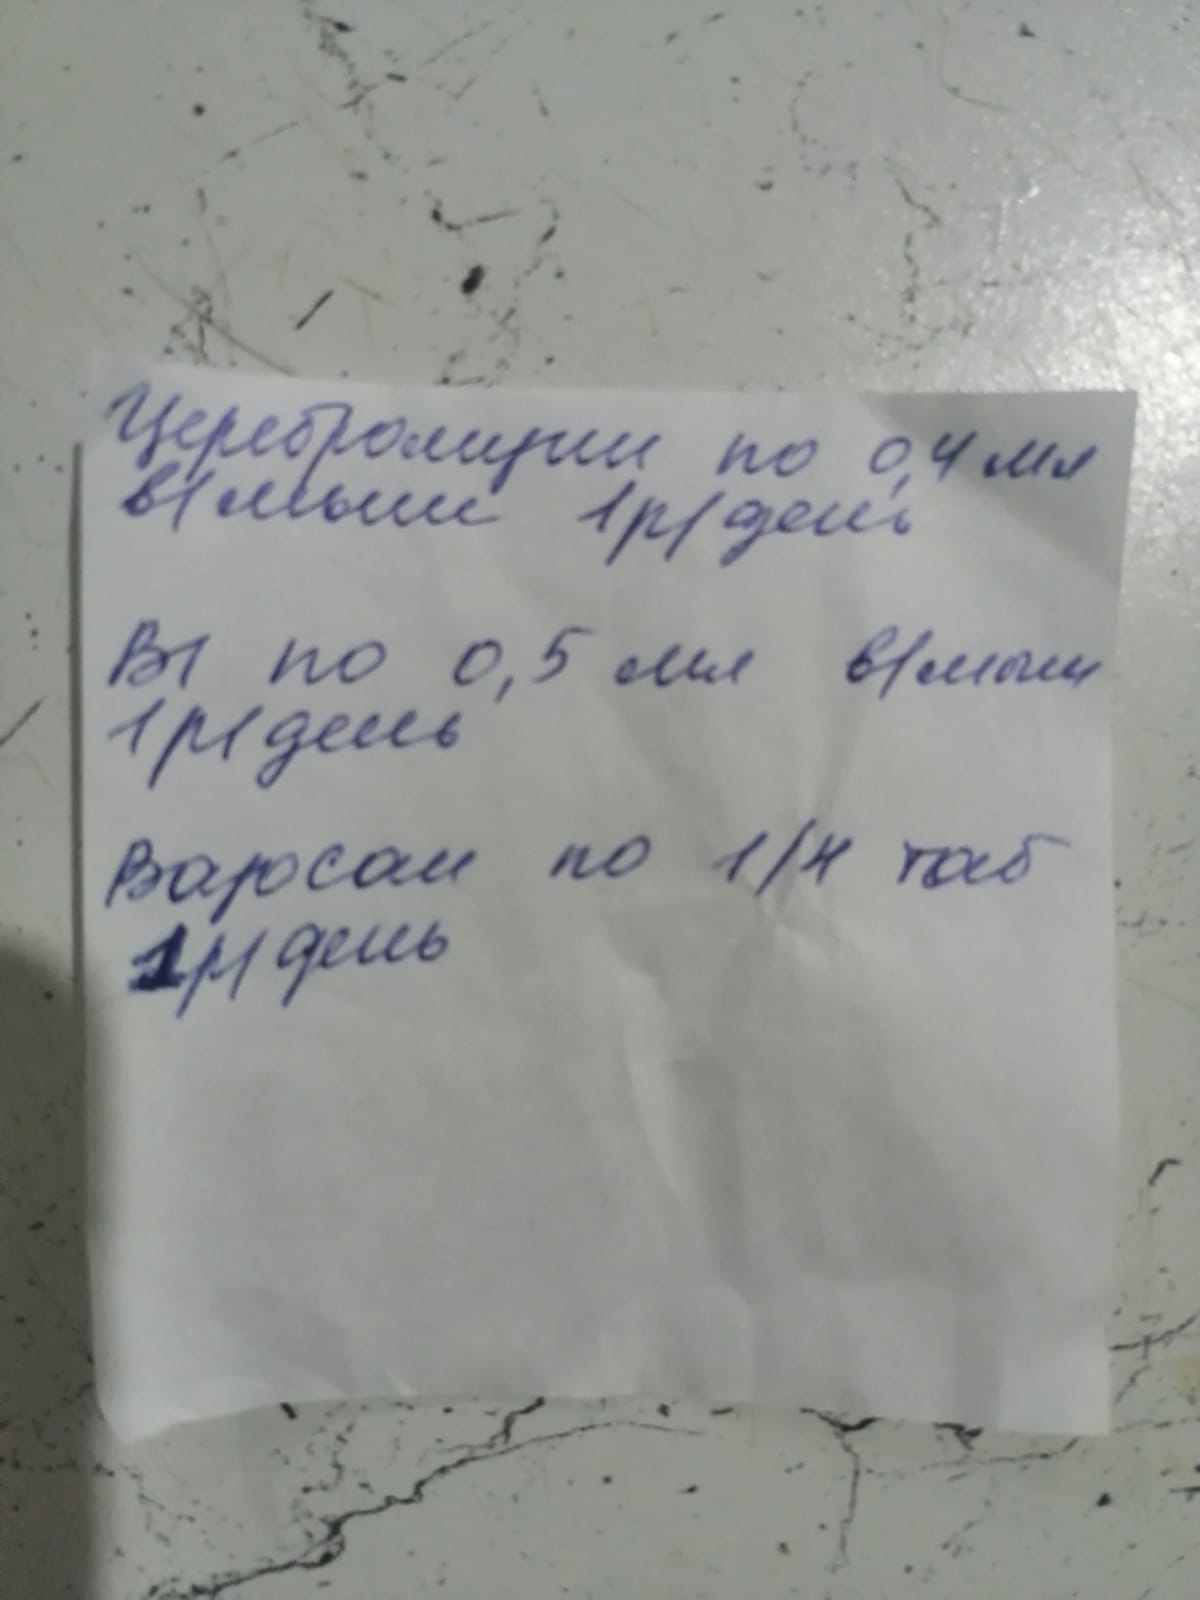 Церебролизин по 0,4 мл
в/мышц 1р/день
В1 по 0,5 мл в/мышц
1р/день
по 1/4 таб
1р/день